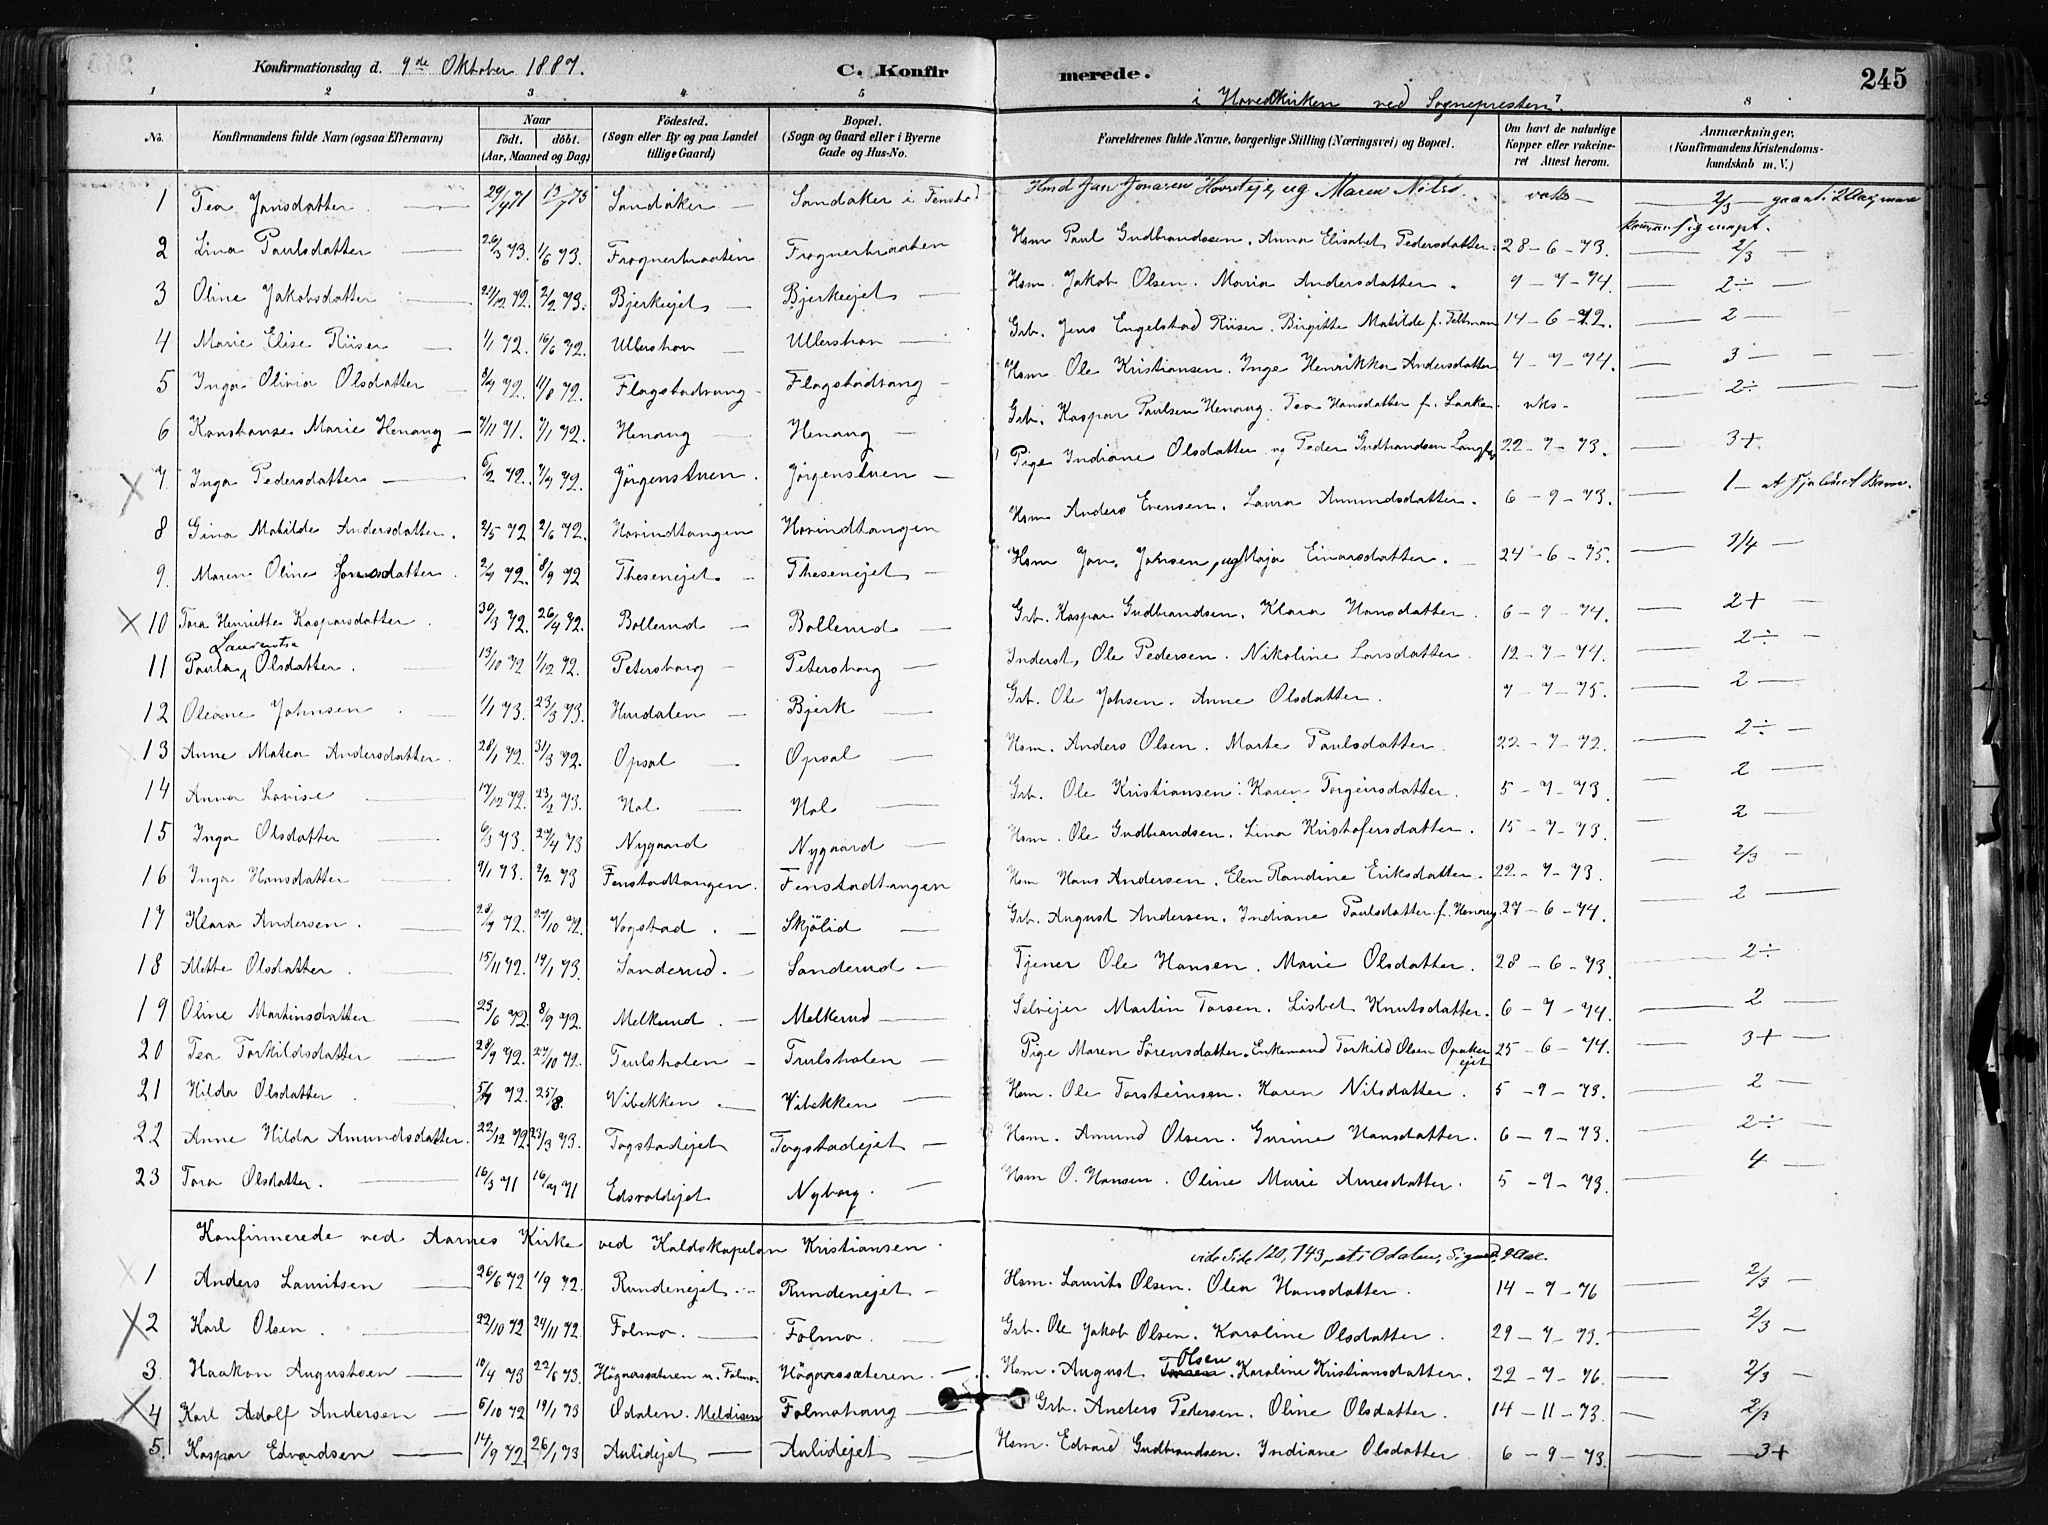 Konfirmationsdag d. 9de Oktober 1887. C. Konfirmerede. 245
i Hovedkirken ved Sognepresten
1 2 3 4 5 7 8
No. Konfirmandens fulde Navn (ogsaa Efternavn) Naar født. døbt. (Aar, Maaned og Dag) Fødested. (Sogn eller By og paa Landet tillige Gaard) Bopæl. (Sogn og Gaard eller i Byerne Gade og Hus-No. Forældrenes fulde Navne, borgerlige Stilling (Næringsvei) og Bopæl. Om havt de naturlige Kopper eller vakcineret Attest herom. Anmærkninger. (Konfirmandens Kristendomskundskab m. V.)
1 Tea Jansdatter 29/4 71 13/7 73 Sandaker Sandaker i Fenstad Maren Nilsd. 2/3
2 Lina Paulsdatter 26/3 73. 1/6 73. Frognerbraaten Frognerbraaten Hsm Paul Gudbrandsen. Anna Elisabet Pedersdatter. 28-6-73. 2/3
3 Oline Jakobsdatter 21/12 72. 2/2 73. Bjerkeejet Bjerkeejet Hsm. Jakob Olsen. Maria Andersdatter. 9-7-74. 2÷
4 Marie Elise Riiser 1/1 72. 16/6 72. Ullershov Ullershov Grb. Jens Engelstad Riiser. Birgitte Matilde f. Feltman 14-6-72. 2
5 Inga Olivia Olsdatter 8/7 72. 11/8 72. Flagstadvang Flagstadvang Hsm Ole Kristiansen. Inge Henrikke Andersdatter 4-7-74. 3
6 Konstanse Marie Henaug 7/11 71. 7/1 72. Henaug Henaug Grb. Kaspar Paulsen Henaug. Tea Hansdatter f. Laake. vks. 2÷
7 Inga Pedersdatter 6/2 72. 7/7 72. Jørgenstuen. Jørgenstuen Pige Indiane Olsdatter og Peder Gudbrandsen 22-7-73. 3+
8 Gina Matilde Andersdatter. 2/5 72 2/6 72. Hovindtangen Hovindtangen Hsm Anders Evensen. Laura Amundsdatter. 6-9-73. 1
9. Maren Oline Jonsdatter. 2/7 72. 8/9 72 Thesenejet Thesenejet Hsm Jon. Johsen, og Maja Einarsdatter. 24-6-75. 3/4
10 Tora Henriette Kasparsdatter. 30/3 72. 26/4 72. Bollerud Bollerud Grb. Kaspar Gudbrandsen. Klara Hansdatter. 6-9-74. 2+
11 Paula Laurentia Olsdatter. 13/10 72 1/12 72. Petersborg Petersborg Inderst, Ole Pedersen. Nikoline Larsdatter. 12-7-74. 2÷
12 Oleane Johnsen 1/1 73. 23/3 73. Hurdalen Bjerk Grb. Ole Johsen. Anne Olsdatter. 7-7-75. 2
13 Anne Matea Andersdatter. 28/1 72. 31/3 72. Opsal Opsal Hsm. Anders Olsen. Marte Paulsdatter. 22-7-72. 2÷
14 Anna Lovise 17/12 72. 23/2 73. Hol Hol Grb. Ole Kristiansen. Karen Torgersdatter. 5-7-73. 2
15 Inga Olsdatter 6/3 73. 27/4 73 Nygaard Nygaard Hsm. Ole Gudbrandsen. Lina Kristofersdatter. 15-7-73. 2
16 Inga Hansdatter 9/1 73. 2/2 73 Fenstadtangen. Fenstadtangen Hsm Hans Andersen. Elen Randine Eriksdatter. 22-7-73. 2/3
17 Klara Andersen. 28/9 72. 27/10 72. Vogstad. Skjölid Grb. August Andersen. Indiane Paulsdatter f. Henaug. 27-6-74. 2
18 Mette Olsdatter 15/11 72. 19/1 73. Sanderud. Sanderud Tjener Ole Hansen. Marie Olsdatter. 28-6-73. 2÷
19 Oline Martinsdatter 23/6 72. 8/9 72. Melkerud. Melkerud Selvejer Martin Torsen. Lisbet Knutsdatter. 6-7-74. 2
20 Tea Torkildsdatter 28/9 72. 27/10 72. Trulsholen Trulsholen Pige Maren Sörensdatter. Enkemand Torkild Olsen Opakerejet 25-6-74. 3+
21 Hilda Olsdatter 5/7 72. 25/8. Vibekken Vibekken Hsm. Ole Torsteinsen. Karen Nilsdatter. 5-9-73. 2
22 Anne Hilda Amundsdatter. 22/12 72. 23/3 73. Togstadejet Togstadejet Hsm. Amund Olsen. Gurine Hansdatter. 6-9-73. 2÷
23 Tora Olsdatter. 16/3 71 16/7 71 Edsvoldejet Nyborg. Hsm O. Hansen. Oline Marie Arnesdatter. 5-9-73. 4
Konfirmerede ved Aarnes Kirke ved Kaldskapelan Kristiansen.
1 Anders Lauritsen 26/6 72 1/9 72. Rundenejet Rundenejet Hsm. Laurits Olsen. Olea Hansdatter. 14-7-76 2/3
2 Karl Olsen. 22/10 72 24/11 72. Folmo. Folmo. Grb. Ole Jakob Olsen. Karoline Olsdatter. 29-7-73. 2/3
3. Haakon Augustsen 10/4 73 22/6 73. Högaassæteren u. Folmo. Högaassæteren. Hsm. August Olsen. Karoline Kristiansdatter. 22-7-76. 2/3
4 Karl Adolf Andersen 5/10 72 19/1 73 Odalen. Folmohaug Grb. Anders Pedersen. Oline Olsdatter. 14-11-73. 2/3
5. Kaspar Edvardsen 14/9 72. 26/1 73 Aulidejet Aulidejet Hsm. Edvard Gudbrandsen. Indiane Olsdatter 6-9-73. 3+